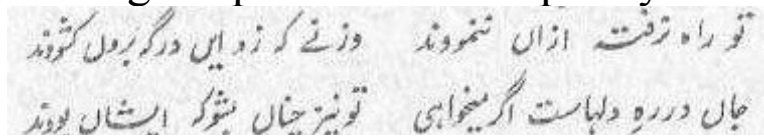 تو راه نرفتہ ازاں ننمودند ورنے کہ زد ایں در کہ برول کشودند
جاں در رہ دلہاست اگر میخواہی تو نیز چناں بشو کہ ایشاں بودند